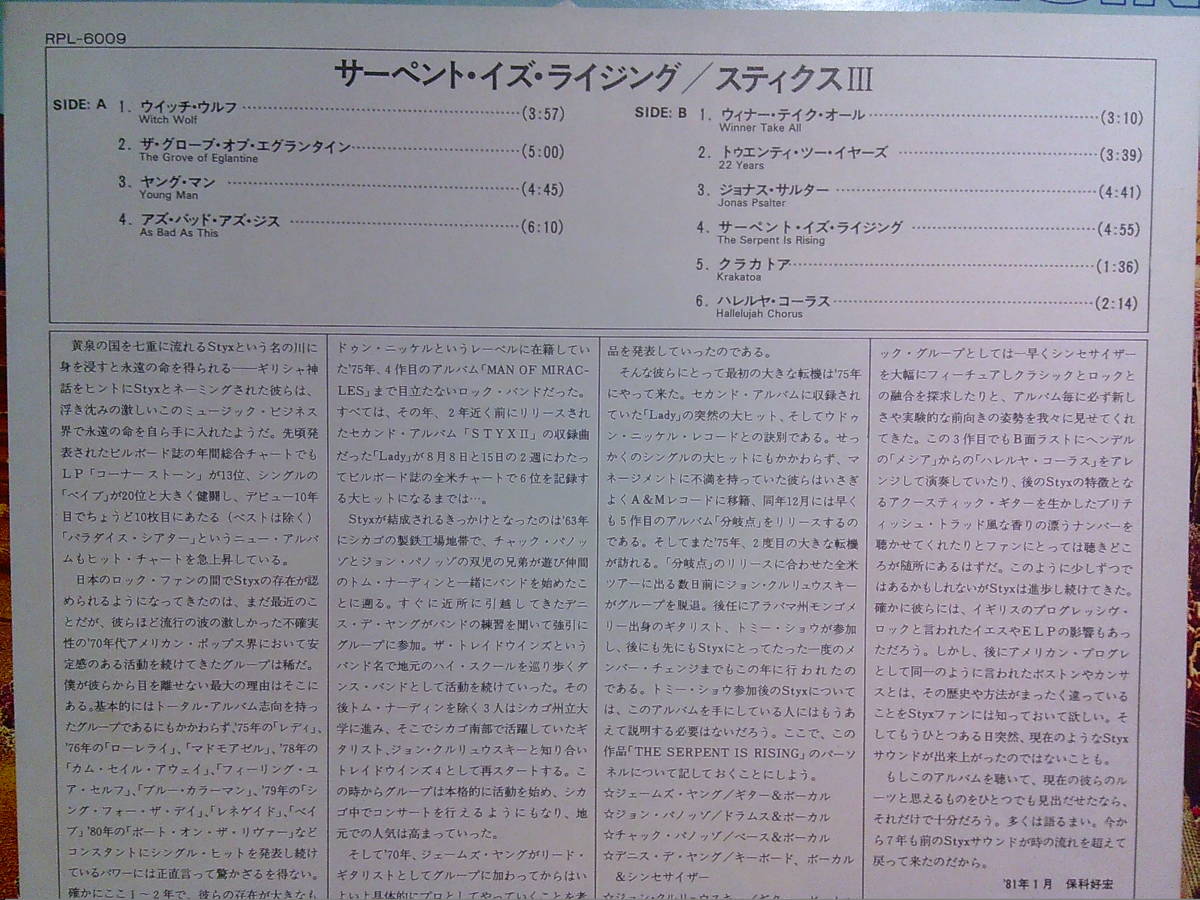 RPL-6009
サーペント・イズ・ライジング／スティクスIII
SIDE: A
1. ウイッチ・ウルフ (3:57)
Witch Wolf
2. ザ・グローブ・オブ・エグランタイン (5:00)
The Grove of Eglantine
3. ヤング・マン (4:45)
Young Man
4. アズ・バッド・アズ・ジス (6:10)
As Bad As This
SIDE: B
1. ウィナー・テイク・オール (3:10)
Winner Take All
2. トゥエンティ・ツー・イヤーズ (3:39)
22 Years
3. ジョナス・サルター (4:41)
Jonas Psalter
4. サーペント・イズ・ライジング (4:55)
The Serpent Is Rising
5. クラカトア (1:36)
Krakatoa
6. ハレルヤ・コーラス (2:14)
Hallelujah Chorus
黄泉の国を七重に流れるStyxという名の川に
身を浸すと永遠の命を得られる――ギリシャ神
話をヒントにStyxとネーミングされた彼らは、
浮き沈みの激しいこのミュージック・ビジネス
界で永遠の命を自ら手に入れたようだ。先頃発
表されたビルボード誌の年間総合チャートでも
LP「コーナーストーン」が13位、シングルの
「ベイブ」が20位と大きく健闘し、デビュー10年
目でちょうど10枚目にあたる（ベストは除く）
「パラダイス・シアター」というニュー・アルバ
ムもヒット・チャートを急上昇している。
日本のロック・ファンの間でStyxの存在が認
められるようになってきたのは、まだ最近のこ
とだが、彼らほど流行の波の激しかった不確実
性の'70年代アメリカン・ポップス界において安
定感のある活動を続けてきたグループは稀だ。
僕が彼らから目を離せない最大の理由はそこに
ある。基本的にはトータル・アルバム志向を持っ
たグループであるにもかかわらず、'75年の「レディ」、
'76年の「ローレライ」、「マドモアゼル」、'78年の
「カム・セイル・アウェイ」、「フィーリング・ユ
ア・セルフ」、「ブルー・カラーマン」、'79年の「シ
ング・フォー・ザ・デイ」、「レネゲイド」、「ベイ
ブ」'80年の「ボート・オン・ザ・リヴァー」など
コンスタントにシングル・ヒットを発表し続け
ているパワーには正直言って驚かざるを得ない。
確かにここ1～2年で、彼らの存在が大きなも
ドゥン・ニッケルというレーベルに在籍してい
た'75年、4作目のアルバム「MAN OF MIRAC-
LES」まで目立たないロック・バンドだった。
すべては、その年、2年近く前にリリースされ
たセカンド・アルバム「STYXII」の収録曲
だった「Lady」が8月8日と15日の2週にわたっ
てビルボード誌の全米チャートで6位を記録す
る大ヒットになるまでは…。
Styxが結成されるきっかけとなったのは'63年
にシカゴの製鉄工場地帯で、チャック・パノッ
ゾとジョン・パノッゾの双児の兄弟が遊び仲間
のトム・ナーディンと一緒にバンドを始めたこ
とに遡る。すぐに近所に引越してきたデニ
ス・デ・ヤングがバンドの練習を聞いて強引に
グループに参加。ザ・トレイドウインズという
バンド名で地元のハイ・スクールを巡り歩くダ
ンス・バンドとして活動を続けていった。その
後トム・ナーディンを除く3人はシカゴ州立大
学に進み、そこでシカゴ南部で活躍していたギ
タリスト、ジョン・クルリュウスキーと知り合い
トレイドウインズ4として再スタートする。こ
の時からグループは本格的に活動を始め、シカ
ゴ中でコンサートを行えるようにもなり、地
元での人気は高まっていった。
そして'70年、ジェームズ・ヤングがリード・
ギタリストとしてグループに加わってからはい
よいよ具体的にプロとしてやっていくことを考
品を発表していったのである。
そんな彼らにとって最初の大きな転機は'75年
にやって来た。セカンド・アルバムに収録され
ていた「Lady」の突然の大ヒット、そしてウドゥ
ン・ニッケル・レコードとの訣別である。せっ
かくのシングルの大ヒットにもかかわらず、マ
ネージメントに不満を持っていた彼らはいさぎ
よくA&Mレコードに移籍、同年12月には早く
も5作目のアルバム「分岐点」をリリースするの
である。そしてまた'75年、2度目の大きな転機
が訪れる。「分岐点」のリリースに合わせた全米
ツアーに出る数日前にジョン・クルリュウスキー
がグループを脱退。後任にアラバマ州モンゴメ
リー出身のギタリスト、トミー・ショウが参加
し、後にも先にもStyxにとってたった一度のメ
ンバー・チェンジまでもこの年に行われたの
である。トミー・ショウ参加後のStyxについて
は、このアルバムを手にしている人にはもうあ
えて説明する必要はないだろう。ここで、この
作品「THE SERPENT IS RISING」のパーソ
ネルについて記しておくことにしよう。
☆ジェームズ・ヤング／ギター＆ボーカル
☆ジョン・パノッゾ／ドラムス＆ボーカル
☆チャック・パノッゾ／ベース＆ボーカル
☆デニース・デ・ヤング／キーボード、ボーカル
＆シンセサイザー
☆ジョン・クルリュウスキー／ギター
ック・グループとしては一早くシンセサイザー
を大幅にフィーチュアしクラシックとロックと
の融合を探求したりと、アルバム毎に必ず新し
さや実験的な前向きの姿勢を我々に見せてくれ
てきた。この3作目でもB面ラストにヘンデル
の「メシア」からの「ハレルヤ・コーラス」をアレ
ンジして演奏していたり、後のStyxの特徴とな
るアクースティック・ギターを生かしたブリテ
ィッシュ・トラッド風な香りの漂うナンバーを
聴かせてくれたりとファンにとっては聴きどこ
ろが随所にあるはずだ。このように少しずつで
はあるかもしれないがStyxは進歩し続けてきた。
確かに彼らには、イギリスのプログレッシヴ・
ロックと言われたイエスやELPの影響もあっ
ただろう。しかし、後にアメリカン・プログレ
として同一のように言われたボストンやカンサ
スとは、その歴史や方法がまったく違っている
ことをStyxファンには知っておいて欲しい。そ
してもうひとつある日突然、現在のようなStyx
サウンドが出来上がったのではないことも。
もしこのアルバムを聴いて、現在の彼らのル
ーツと思えるものをひとつでも見出だせたなら、
それだけで十分だろう。多くは語るまい。今か
ら7年も前のStyxサウンドが時の流れを超えて
戻って来たのだから。
'81年1月 保科好宏